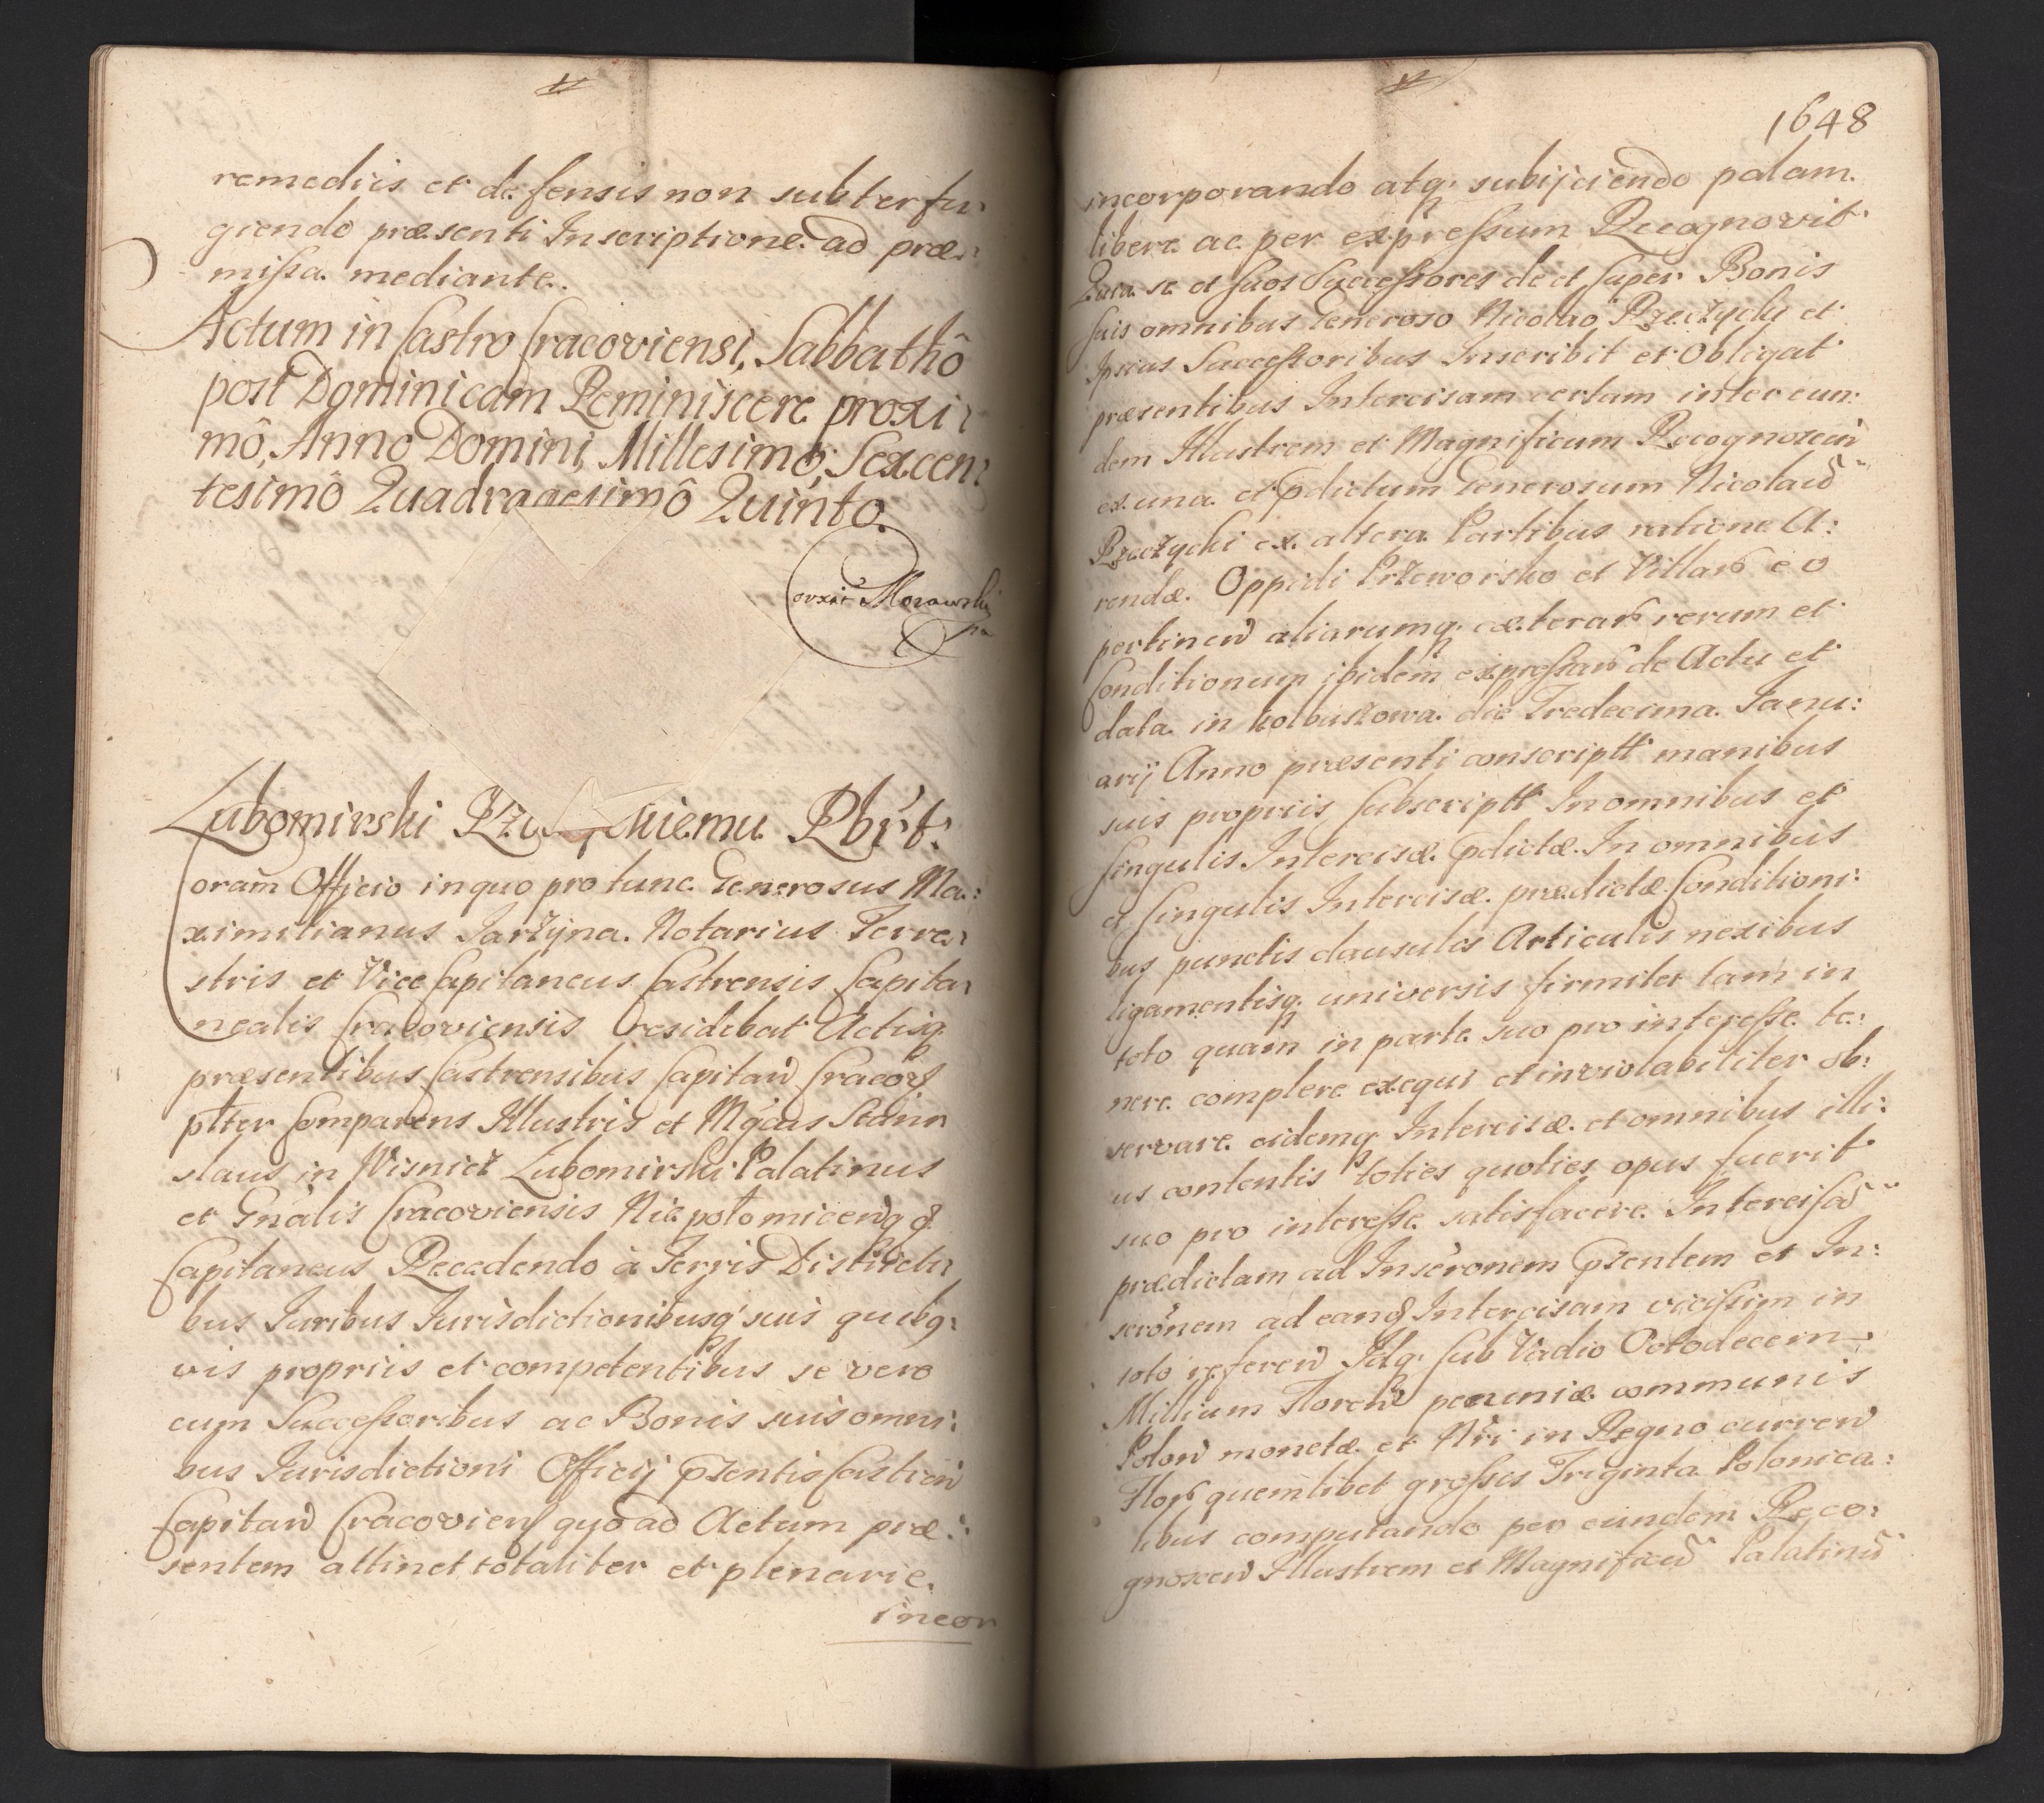 remediis et defensis non subterfu:
giendo præsenti Inscriptione ad præ:
missa mediante.
Actum in Castro Cracoviensi, Sabbathô
post Dominicam Reminiscere proxi:
mô, Anno Domini, Millesimô, Sexcen:
tesimô Quadragesimô Quinto.
Morawski
Lubomirski Rze kiemu Rbt.
Coram Officio in quo pro tunc Generosus Ma:
ximilianus Jarzyna Notarius Terre:
stris et Vice Capitaneus Castrensis Capita:
nealis Cracoviensis residebat Actisq
præsentibus Castrensibus Capitan Cracov
plter Comparens Illustris et Mgcus Stani
slaus in Wisnicz Lubomirski Palatinus
et Gnalis Cracoviensis Niepolomicenq
Capitaneus Recedendo à Terris Districti:
bus Juribus Jurisdictionibusq suis quibq:
vis propriis et competentibus se vero
cum Successoribus ac Bonis suis omni:
bus Jurisdictioni Officij pzentis Castren
Capitan Cracoviens quo ad Actum præ:
sentem attinet totaliter et plenarie
incor
1648
incorporando atq subijciendo palam
libere ac per expressum Recognovit
Quia se et suos Successores de et super Bonis
suis omnibus Generoso Nicolao Rzeczycki et
Ipsius Successoribus Inscribit et Obligat
præsentibus Intercisam certam inter eun:
dem Illustrem et Magnificum Recognoscen
ex una et pdictum Generosum Nicolaum
Rzeczycki ex altera Partibus ratione A:
rendæ Oppidi Przeworsko et Villar eo
pertinen aliarumq cæterar rerum et
Conditionum ibidem expressar de Actu et
data in Kolbuszowa die Tredecima Janu:
arij Anno præsenti conscriptt manibus
suis propriis subscriptt In omnibus et
singulis Intercisæ pdictæ In omnibus
et singulis Intercisæ prædictæ Conditioni:
bus punctis clausulis Articulis nexibus
ligamentisq universis firmiter tam in
toto quam in parte suo pro interesse te:
nere complere exequi et inviolabiliter ob:
servare eidemq Intercisæ et omnibus illi:
us contentis toties quoties opus fuerit
suo pro interesse satisfacere Intercisam
prædictam ad Inscronem pzentem et In:
scronem ad eand Intercisam vicissim in
toto referen Idq sub Vadio Octodecem
Millium Floren pecuniæ communis
Polon monetæ et Nri in Regno curren
Flor quemlibet grosses Triginta Polonica:
libus computando per eundem Reco:
gnoscen Illustrem et Magnificum Palatinum